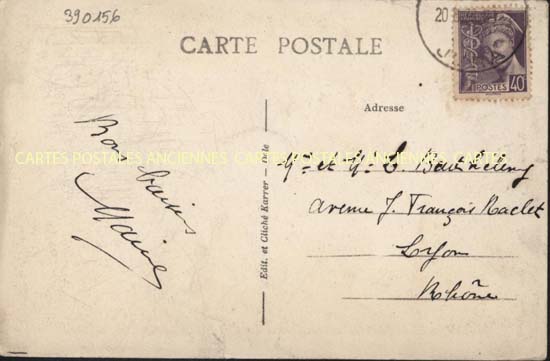 390156
20
CARTE POSTALE
POSTES
40
Adresse
CARTES POSTALES ANCIENNES CARTES POSTALES ANCIENNES
Bons baisers
Edit. et Cliché Karrer — Dole
Mr et Me Barthélemy
avenue J. François Raclet
Lyon
Rhône